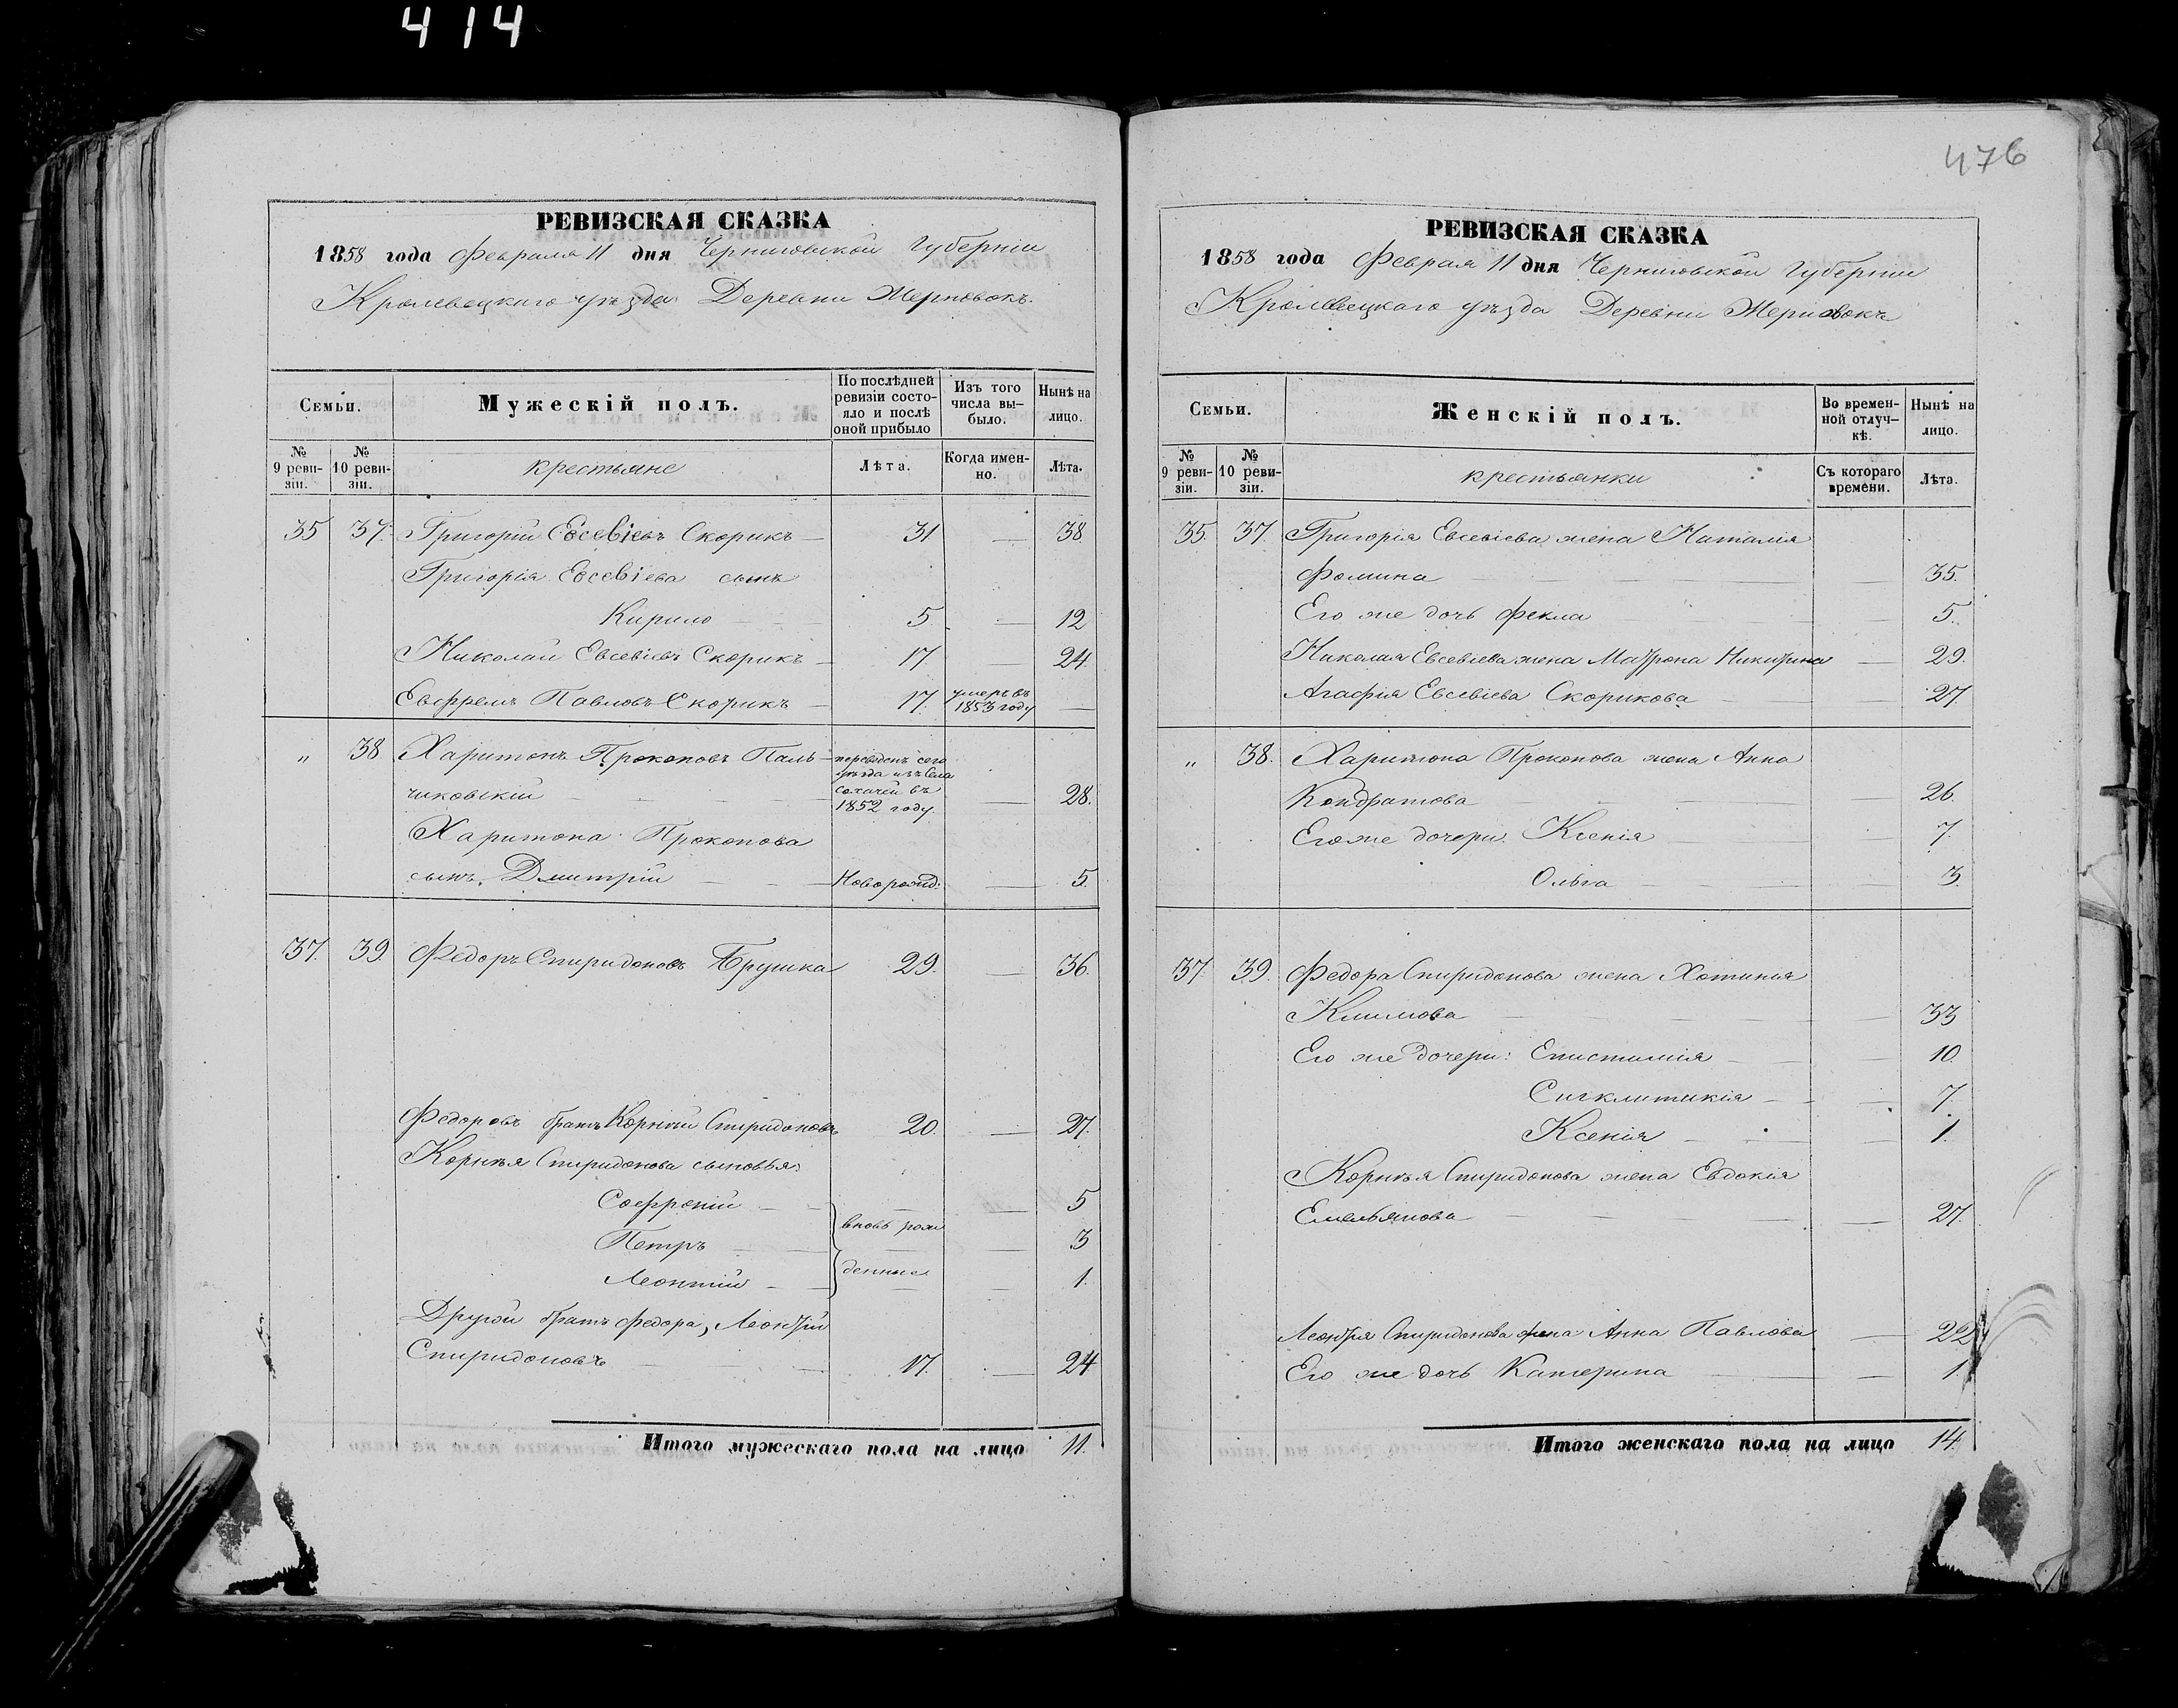 414
476
РЕВИЗСКАЯ СКАЗКА
1858 года Февраля 11 дня Черниговской Губернии
Кролевецкаго уѣзда Деревни Жерновокъ.
Семьи.
Мужескій полъ.
По послѣдней ревизіи состо-
яло и послѣ
оной прибыло
Изъ того
числа вы-
было.
Нынѣ на
лицо.
№
9 реви-
зіи.
№
10 реви-
зіи.
крестьяне
Лѣта.
Когда имен-
но.
Лѣта.
35 37. Григорій Евсевіевъ Скорикъ 31 — 38
Григорія Евсевіева сынъ
Кирило 5 — 12
Николай Евсевіевъ Скорикъ 17 — 24
Евфремъ Павловъ Скорикъ 17. умеръ въ —
1853 году
„ 38 Харитонъ Прокоповъ Паль-
чиковскій — 28.
переведенъ сего
уѣзда изъ села
въ
1852 году.
Харитона Прокопова
сынъ Дмитрій Новорожд: — 5.
37. 39. Федоръ Спиридоновъ Брушка 29. — 36.
Федоровъ братъ Корнѣй Спиридоновъ 20. — 27.
Корнѣя Спиридонова сыновья:
Софроній — 5
вновь рож
Петръ — 3
денные
Леонтій — 1.
Другой братъ Федора, Леонтій
Спиридоновъ 17. — 24
Итого мужескаго пола на лицо 11.
РЕВИЗСКАЯ СКАЗКА
1858 года Февраля 11 дня Черниговской Губернии
Кролевецкаго уѣзда Деревни Жерновокъ
Семьи.
Женскій полъ.
Во времен-
ной отлуч-
кѣ.
Нынѣ на
лицо.
№
9 реви-
зіи.
№
10 реви-
зіи.
крестьянки
Съ котораго
времени.
Лѣта.
35. 37. Григорія Евсевіева жена Наталія
Фомина — 35.
Его же дочь Фекла 5.
Николая Евсевіева жена Матрона Никитина — 29.
Агафія Евсевіева Скорикова — 27.
„ 38. Харитона Прокопова жена Анна
Кондратова 26.
Его же дочери: Ксенія — 7.
Ольга — 3.
37. 39. Федора Спиридонова жена Хотинья
Климова — 33
Его же дочери: Епистимія — 10.
Сигклитикія — 7
Ксенія — 1.
Корнѣя Спиридонова жена Евдокія
Емельянова — 27.
Леонтія Спиридонова жена Анна Павлова — 22
Его же дочь Катерина — 1
Итого женскаго пола на лицо 14.